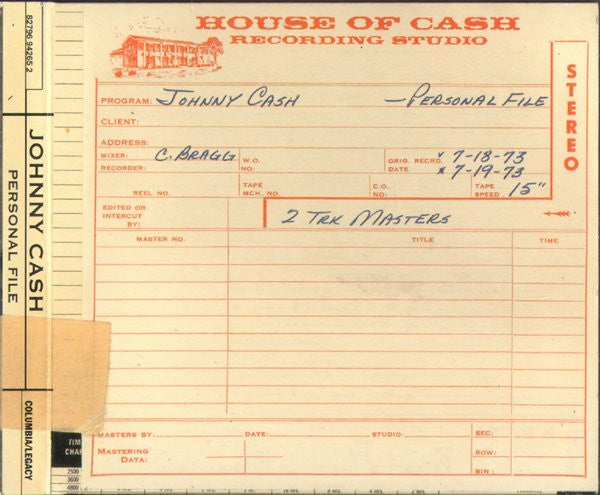 82796 94265 2
JOHNNY CASH
PERSONAL FILE
COLUMBIA/LEGACY
HOUSE OF CASH
RECORDING STUDIO
STEREO
PROGRAM: JOHNNY CASH — PERSONAL FILE
CLIENT:
ADDRESS:
MIXER: C. BRAGG W.O. ORIG. RECRD. 7-18-73
RECORDER: NO: DATE 7-19-73
REEL NO. TAPE MCH. NO. C.O. NO: TAPE SPEED 15"
EDITED OR INTERCUT BY: 2 TRK MASTERS
MASTER NO. TITLE TIME
MASTERS BY: DATE: STUDIO: SEC:
MASTERING DATA: ROW:
BIN:
TIM
CHAR
7500
3600
4800